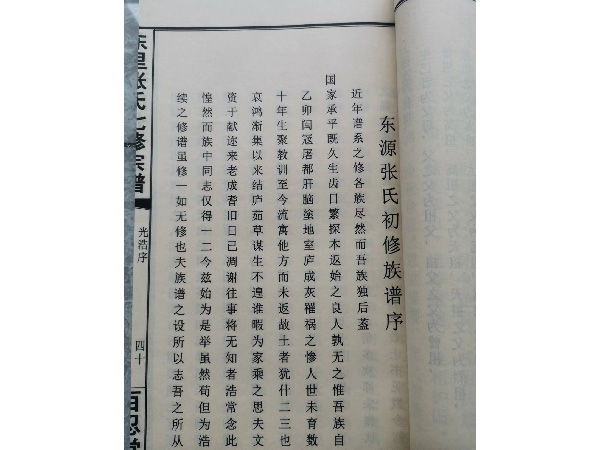 东源张氏初修族谱序
近年谱系之修各族尽然而吾族独后盖
国家承平既久生齿日繁探木返始之良人孰无之惟吾族自
乙卯闰寇屠都肝脑塗地室庐成灰罹祸之惨人世未有数
十年生聚教训至今流寓他方而未返故土者犹什二三也
哀鸿渐集以来结庐茹草谋生不遑谁暇为家乘之思夫文
资于献迩来老成耆旧日已凋谢往事将无知者浩常念此
惶然而族中同志仅得一二今兹始为是举虽然苟但为浩
续之修谱虽修一如无修也夫族谱之设所以志吾之所从
东里张氏七修宗谱
光浩序
四十
百忍堂